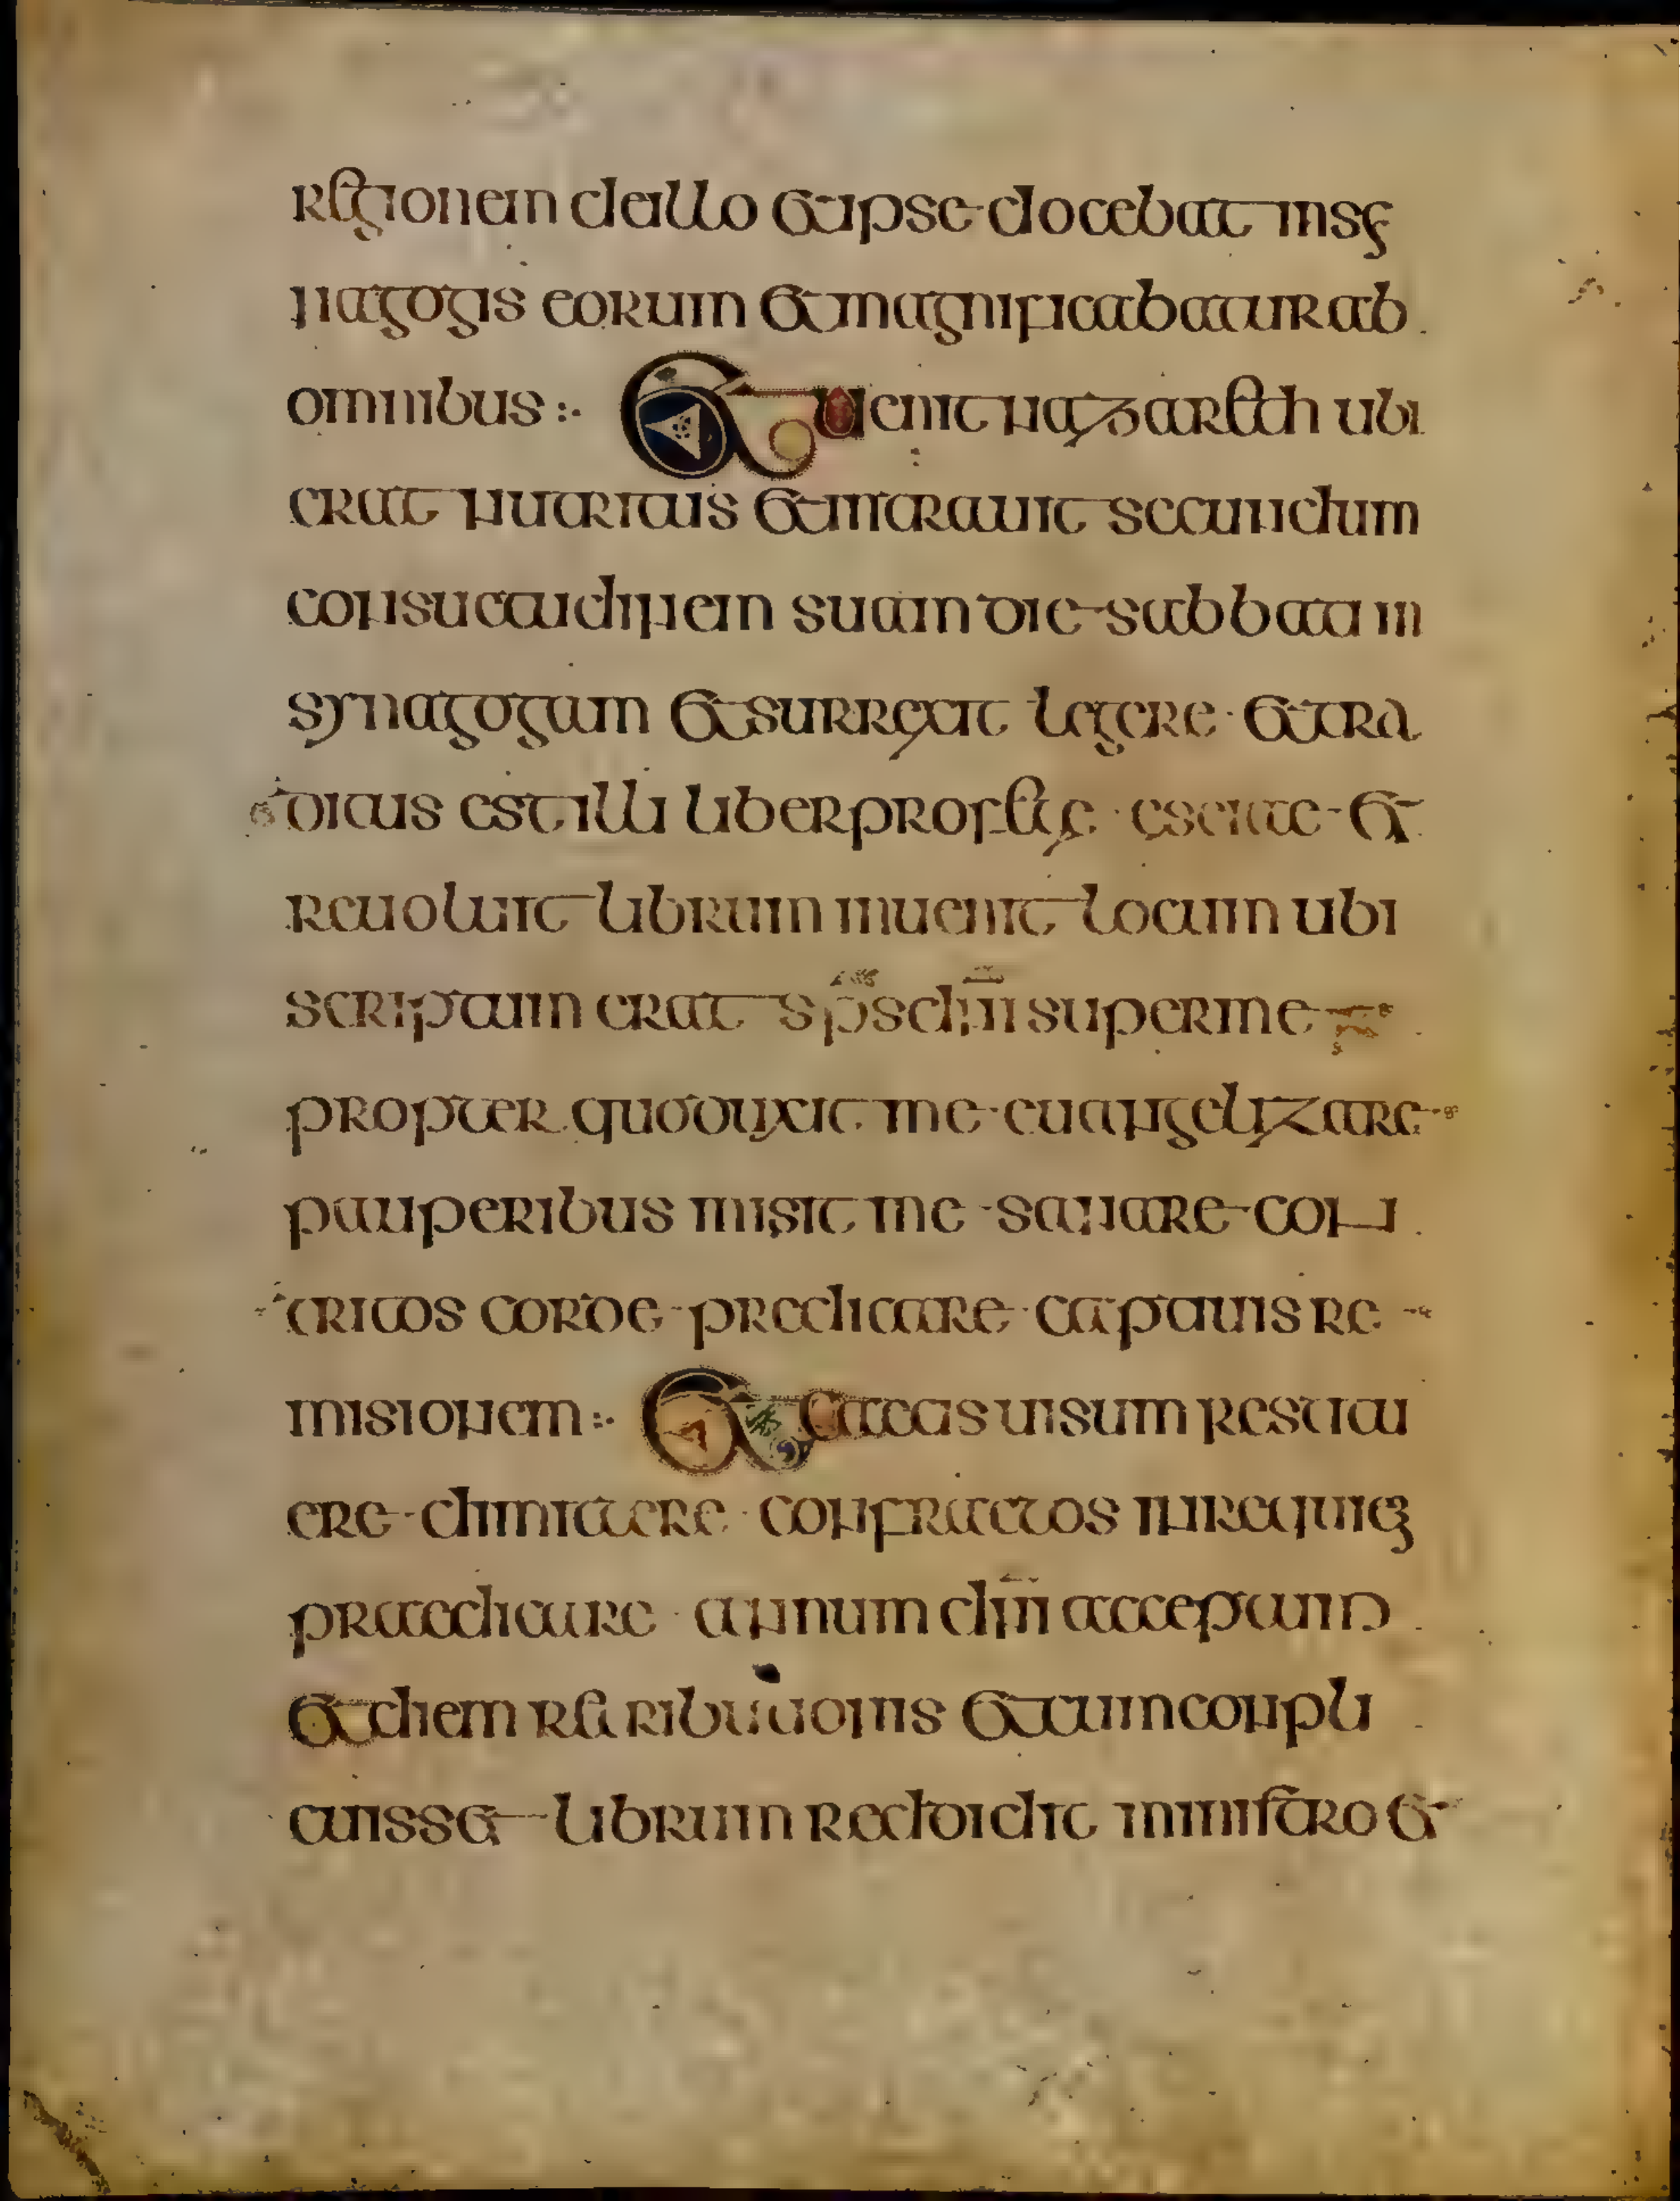 regionem de illo et ipse docebat in sẹ
nagogis eorum et magnificabatur ab
omnibus:· Et uenit nazareth ubi
erat nutritus et intrauit secundum
consuetudinem suam die sabbati in
synagogam et surrexit legere · et tra
ditus est illi liber profetae · eseiae · et
reuoluit librum inuenit locum ubi
scriptum erat sp̄s dn̄i super me
propter quod unxit me · euangelizare ·
pauperibus misit me · sanare con
tritos corde · predicare · captiuis re
misionem:· Et caecis uisum restitu
ere · dimittere · confractos in remi
praedicare · annum dn̄i acceptum
et diem retributionis et cum conpli
cuisset librum reddidit ministro et